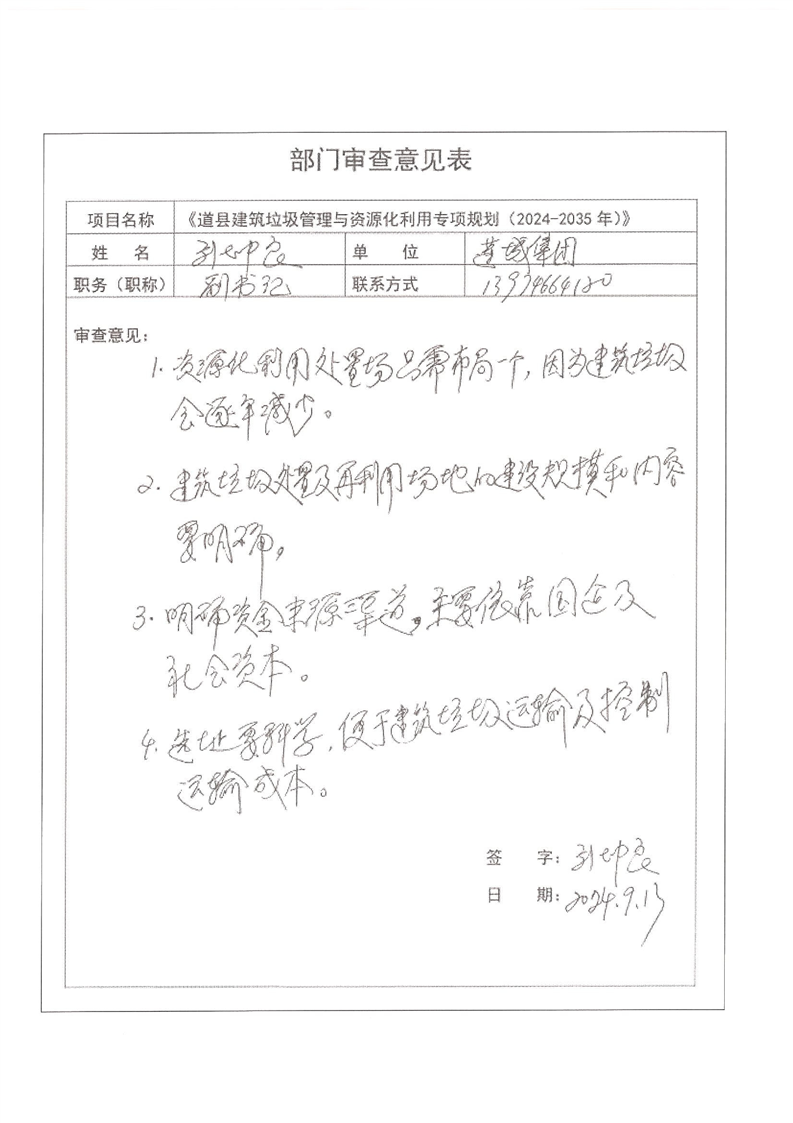 部门审查意见表
项目名称 《道县建筑垃圾管理与资源化利用专项规划（2024-2035年）》
姓 名 刘坤良 单 位 莲城集团
职务（职称） 副书记 联系方式
审查意见：
1. 资源化利用处置场只需布局一个，因为建筑垃圾
会逐年减少。
2. 建筑垃圾处置及再利用场地的建设规模和内容
要明确。
3. 明确资金来源渠道，主要依靠国企及
社会资本。
4. 选址要科学，便于建筑垃圾运输及控制
运输成本。
签 字：刘坤良
日 期：2024.9.13